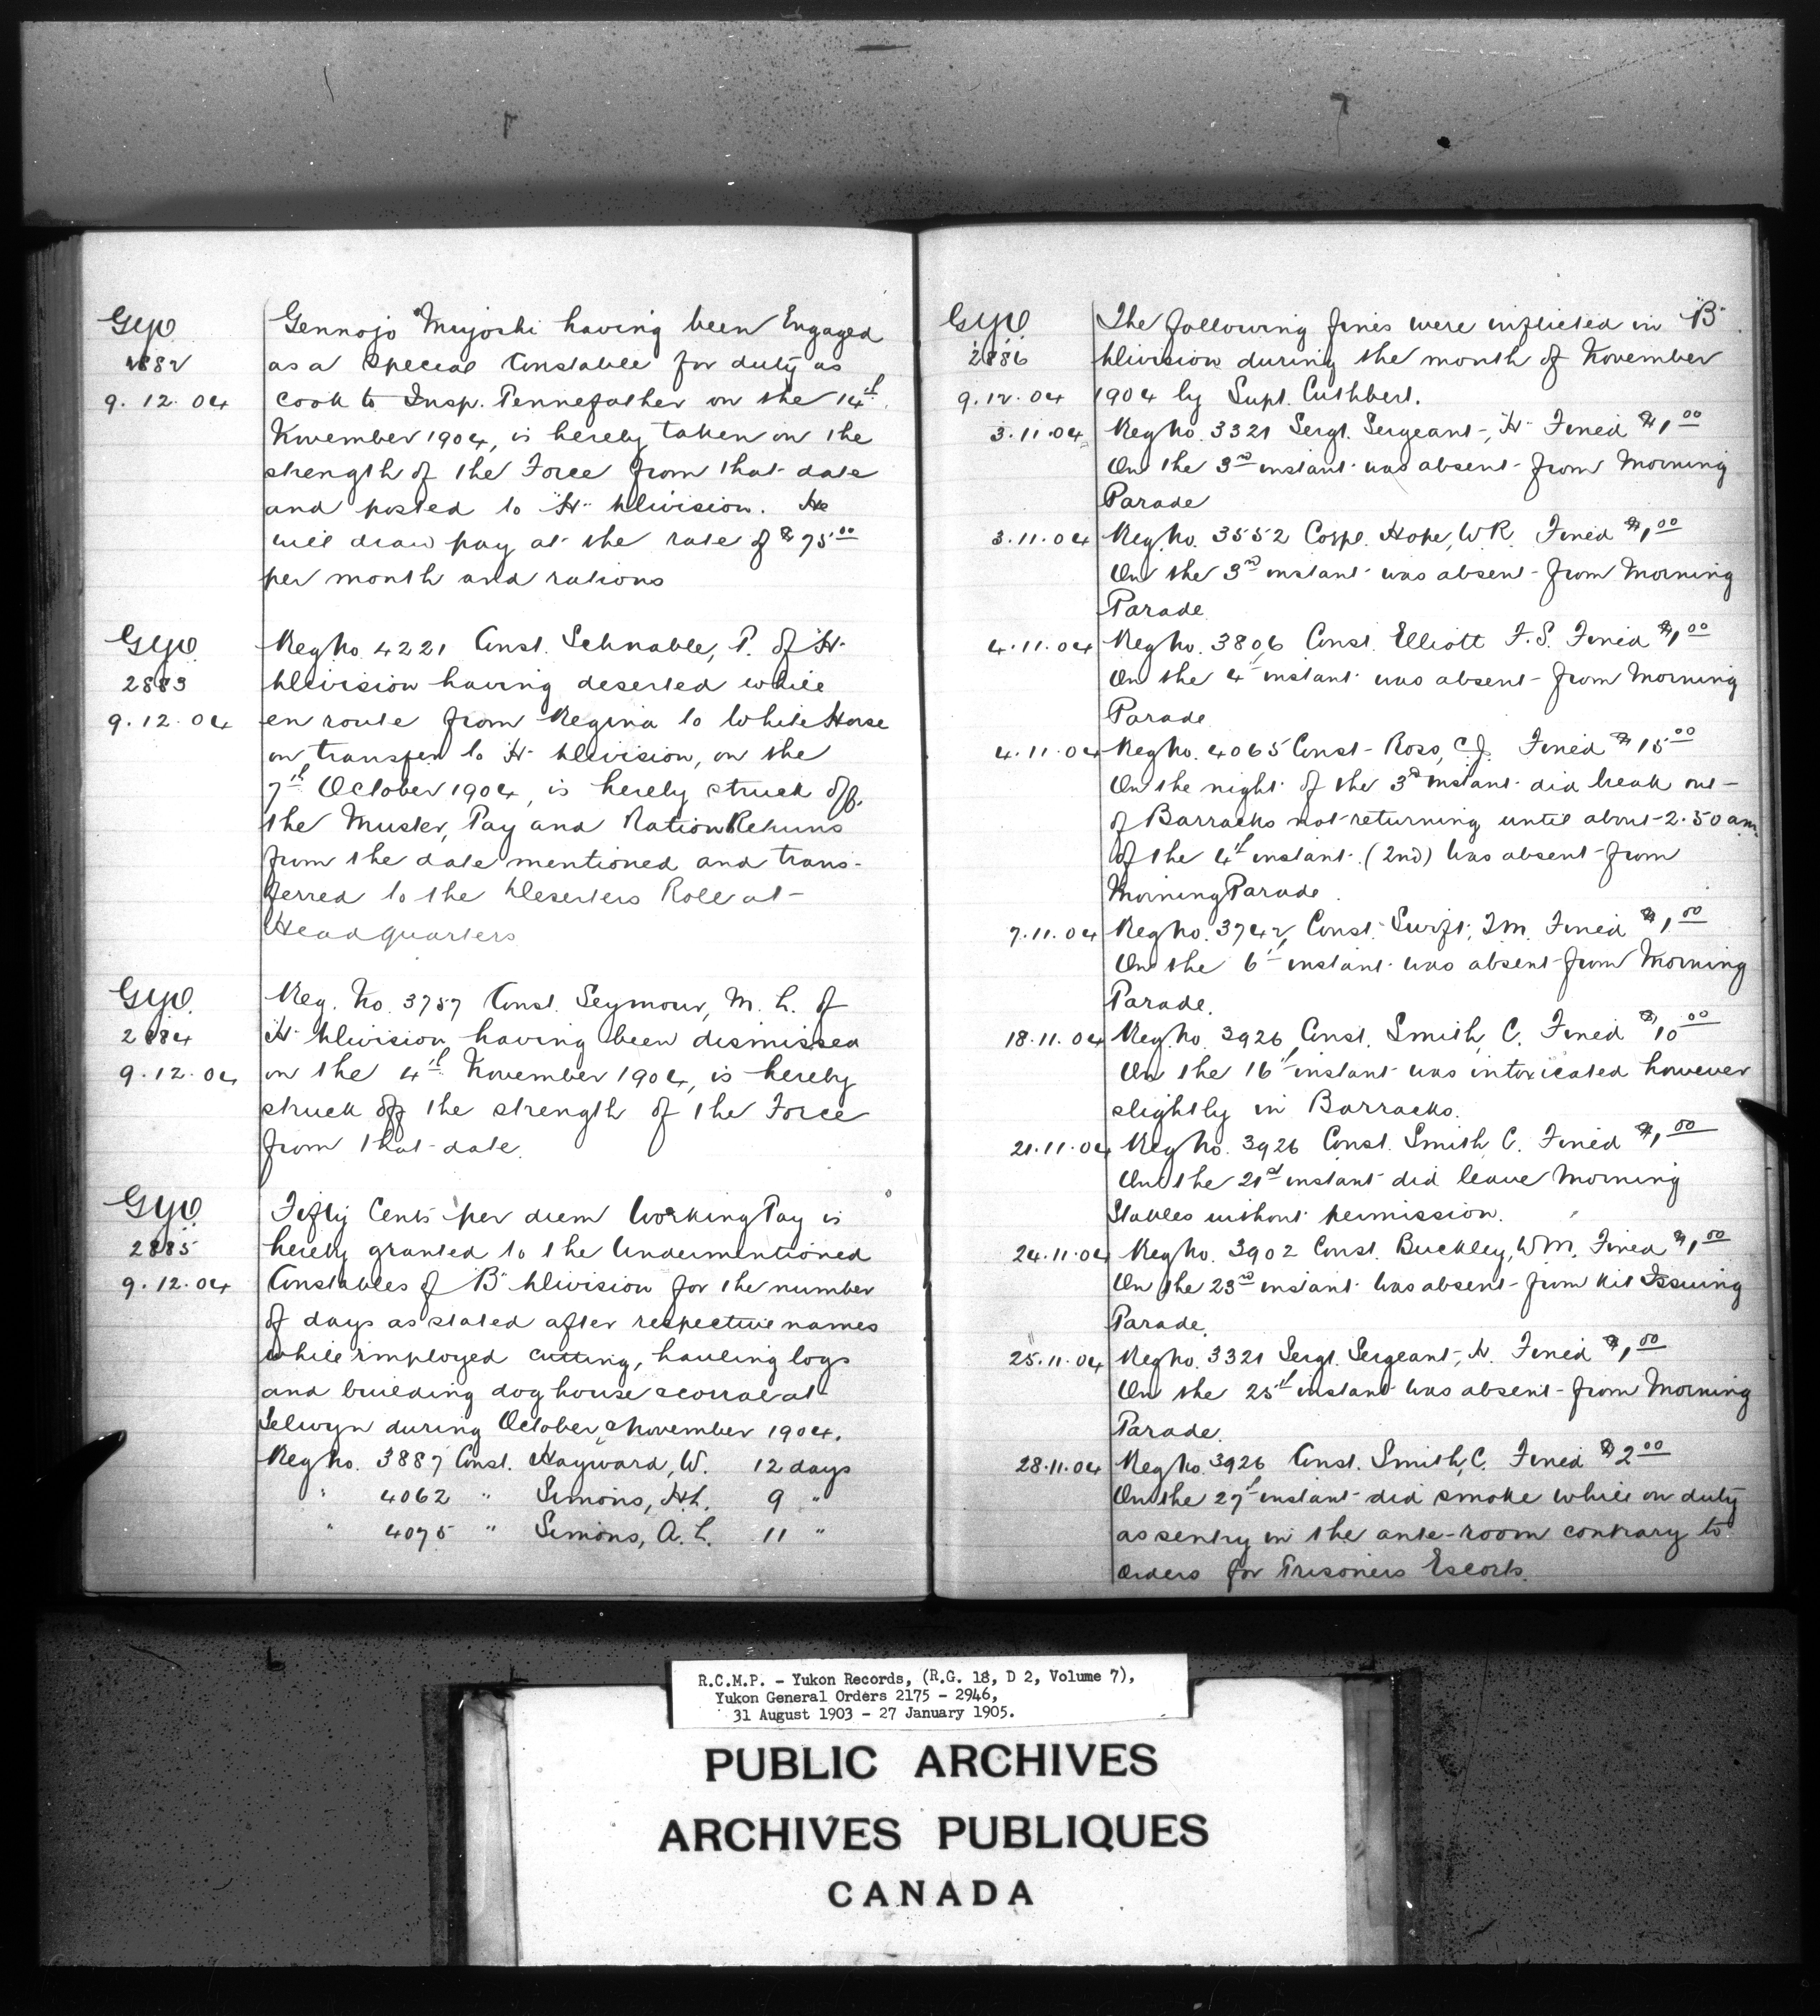 G.Y.O.
2882
9.12.04
Gennojo Muyoshi having been Engaged
as a Special Constable for duty as
cook to Insp. Pennefather on the 14th
November 1904, is hereby taken on the
strength of the Force from that date
and posted to "H" Division. He
will draw pay at the rate of $75.00
per month and rations
G.Y.O.
2883
9.12.04
Reg No. 4221 Const. Schnable, P. of "H"
Division having deserted while
en route from Regina to White Horse
on transfer to "H" Division, on the
7th October 1904, is hereby struck off
the Muster, Pay and Ration Returns
from the date mentioned and trans-
ferred to the Deserters Roll at
Headquarters
G.Y.O.
2884
9.12.04
Reg. No. 3757 Const. Seymour, M. L. of
"H" Division having been dismissed
on the 4th November 1904, is hereby
struck off the strength of the Force
from that date.
G.Y.O.
2885
9.12.04
Fifty Cents per diem Working Pay is
hereby granted to the Undermentioned
Constables of "B" Division for the number
of days as stated after respective names
while employed cutting, hauling logs
and building dog house & corral at
Selwyn during October & November 1904.
Reg No. 3887 Const. Hayward, W. 12 days
" 4062 " Simons, H.L. 9 "
" 4075 " Simons, A. L. 11 "
G.Y.O.
2886
9.12.04
The following fines were inflicted in "B"
Division during the month of November
1904 by Supt. Cuthbert.
3.11.04 Reg No. 3321 Sergt. Sergeant, H. Fined $1.00
On the 3rd instant was absent from Morning
Parade
3.11.04 Reg. No. 3552 Corpl. Hope, W.R. Fined $1.00
On the 3rd instant was absent from Morning
Parade.
4.11.04 Reg No. 3806 Const. Elliott F.S. Fined $1.00
On the 4th instant was absent from Morning
Parade
4.11.04 Reg No. 4065 Const. Ross, C.J. Fined $15.00
On the night of the 3rd instant did break out
of Barracks not returning until about 2.50 am.
of the 4th instant. (2nd) Was absent from
Morning Parade.
7.11.04 Reg No. 3742, Const. Swift, T.M. Fined $1.00
On the 6th instant was absent from Morning
Parade.
18.11.04 Reg. No. 3926 Const. Smith, C. Fined $10.00
On the 16th instant was intoxicated however
slightly in Barracks.
21.11.04 Reg No. 3926 Const. Smith, C. Fined $1.00
On the 21st instant did leave Morning
Stables without permission.
24.11.04 Reg No. 3902 Const. Buckley, W.M. Fined $1.00
On the 23rd instant was absent from Kit Issuing
Parade.
25.11.04 Reg No. 3321 Sergt. Sergeant, H. Fined $1.00
On the 25th instant was absent from Morning
Parade.
28.11.04 Reg No. 3926 Const. Smith, C. Fined $2.00
On the 27th instant did smoke while on duty
as sentry in the ante-room contrary to
Orders for Prisoners Escorts.
R.C.M.P. - Yukon Records, (R.G. 18, D 2, Volume 7),
Yukon General Orders 2175 - 2946,
31 August 1903 - 27 January 1905.
PUBLIC ARCHIVES
ARCHIVES PUBLIQUES
CANADA